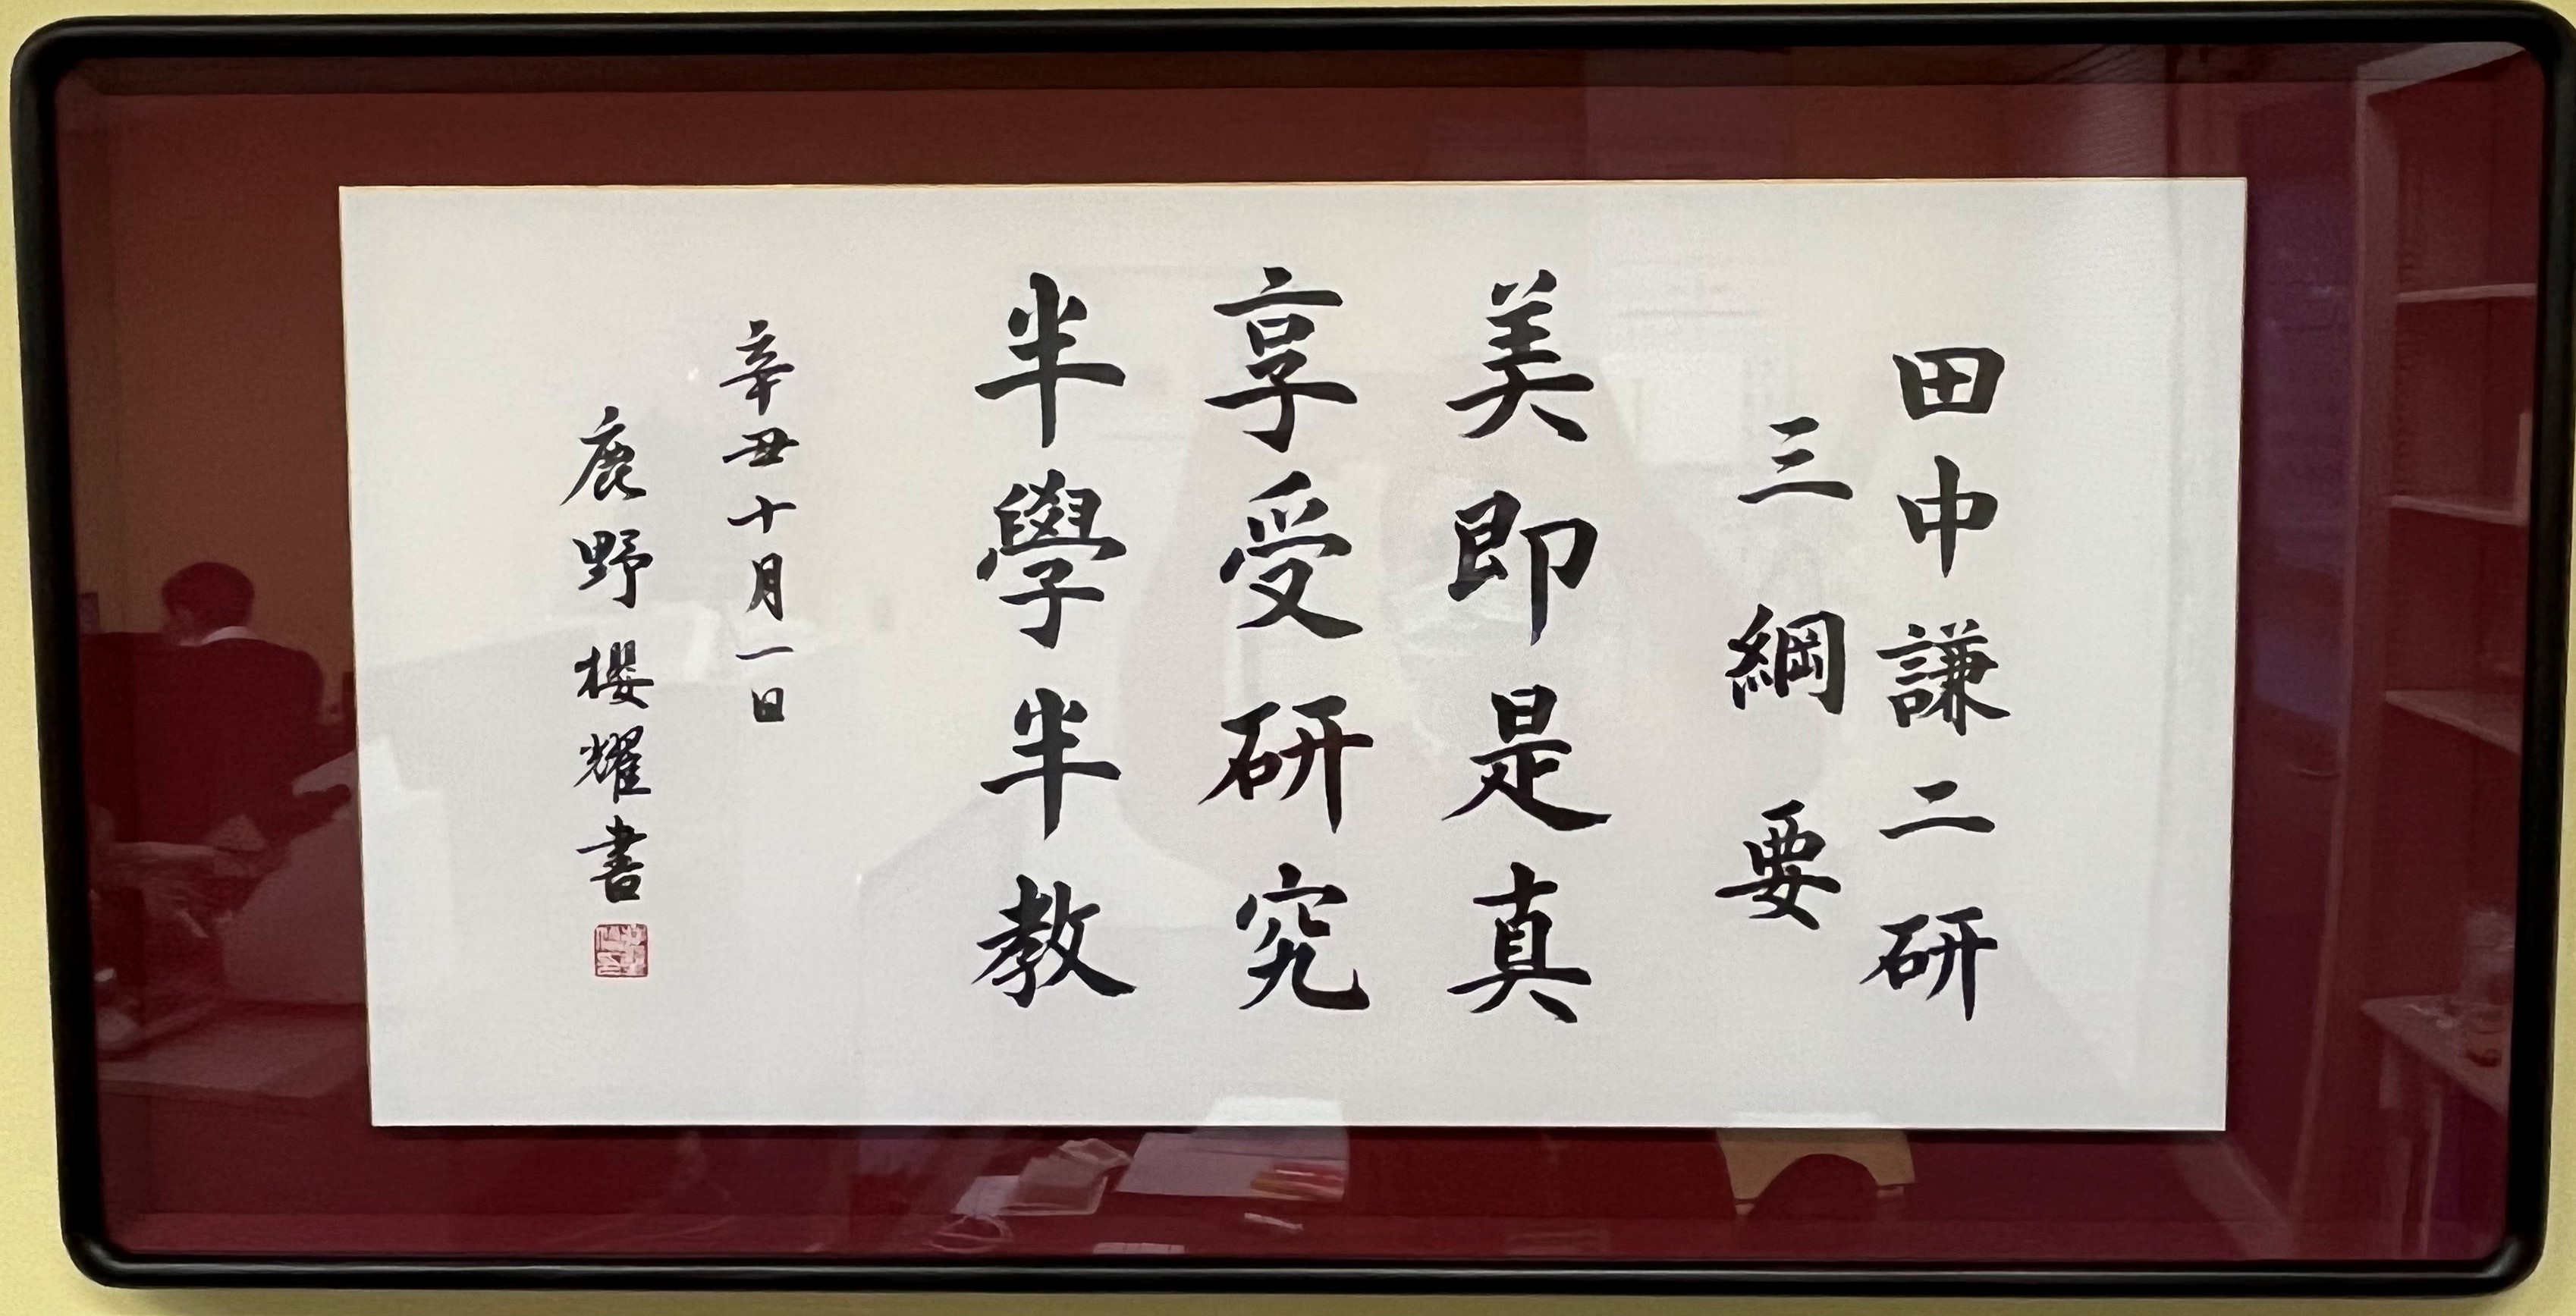 田中謙二研
三綱要
美即是真
享受研究
半學半教
辛丑十月一日
鹿野櫻耀書